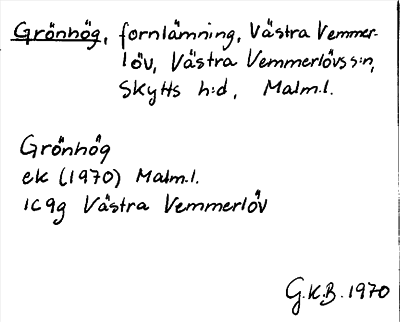 Grönhög, fornlämning, Västra Vemmer-
löv, Västra Vemmerlövs s:n,
Skytts h:d, Malm.l.
Grönhög
ek (1970) Malm.l.
1C9g Västra Vemmerlöv
G.K.B. 1970